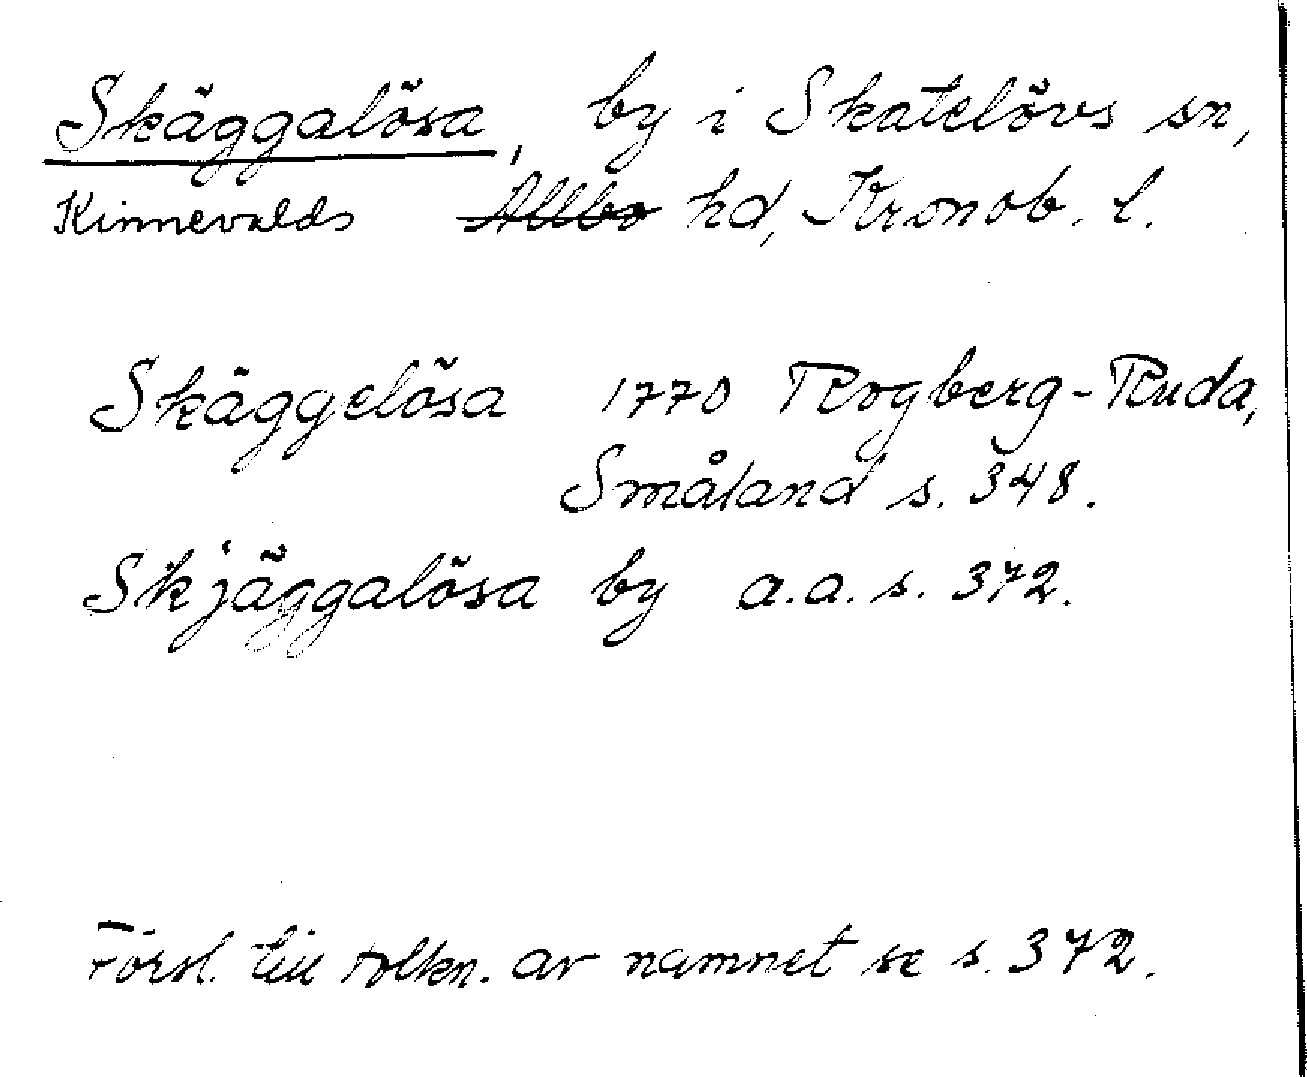 Skäggalösa, by i Skatelövs sn,
Kinnevalds Allbo hd, Kronob. l.
Skäggelösa 1770 Rogberg-Ruda,
Småland s. 348.
Skjäggalösa by a.a. s. 372.
Försl. till tolkn. av namnet se s. 372.